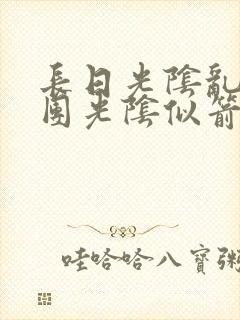 長日光陰亂
團光陰似箭
哇哈哈八寶粥